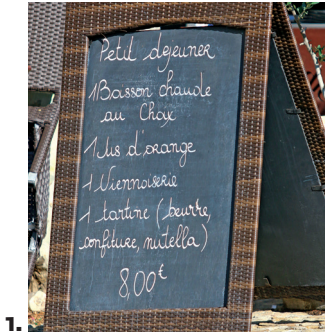 Petit dejeuner
1 Boisson chaude
au Choix
1 Jus d'orange
1 Viennoiserie
1 tartine (beurre,
confiture, nutella)
8,00€
1.